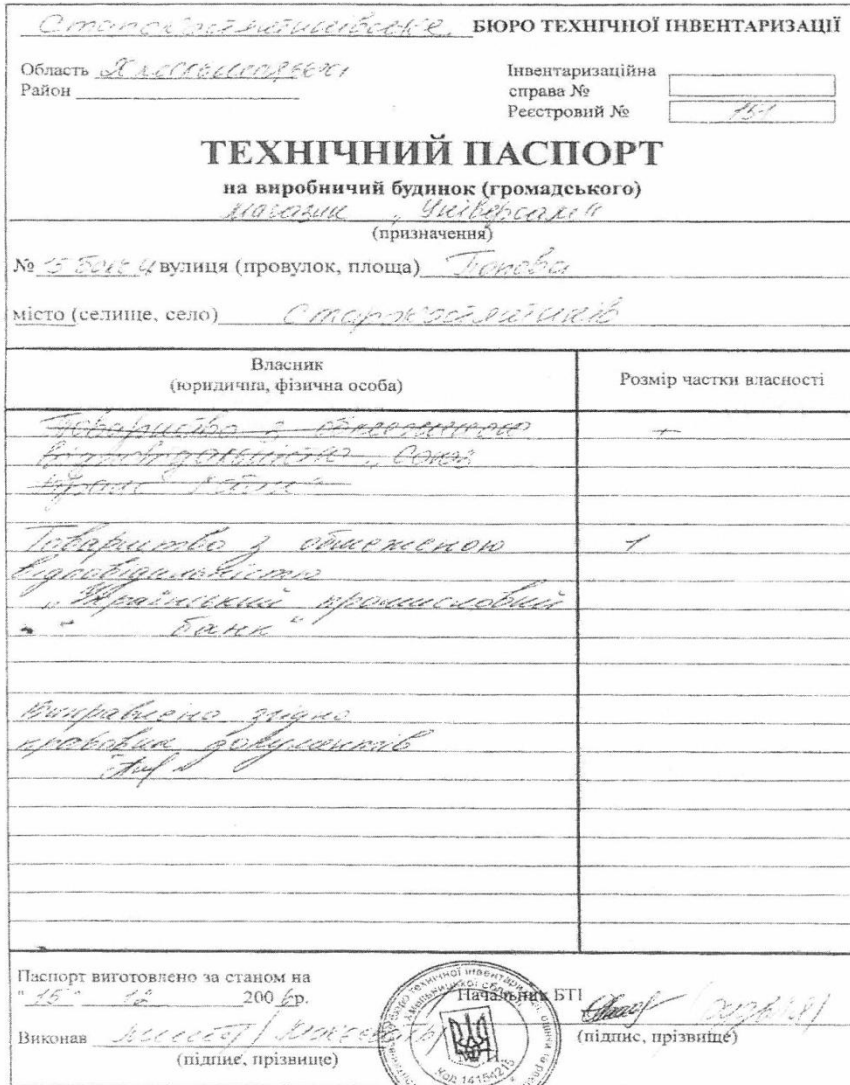 Старокостянтинівське БЮРО ТЕХНІЧНОЇ ІНВЕНТАРИЗАЦІЇ
Область Хмельницька
Район
Інвентаризаційна
справа №
Реєстровий № 151
ТЕХНІЧНИЙ ПАСПОРТ
на виробничий будинок (громадського)
магазин „Універсам"
(призначення)
№ 15 вулиця (провулок, площа) Попова
місто (селище, село) Старокостянтинів
Власник
(юридична, фізична особа)
Розмір частки власності
Товариство з обмеженою
відповідальністю „Союз
Товариство з обмеженою 1
відповідальністю
„Український промисловий
банк"
Виправлено згідно
правових документів
Паспорт виготовлено за станом на
" 15 " 12 2006р.
Начальник БТІ
Виконав
(підпис, прізвище)
(підпис, прізвище)
Код 14154215